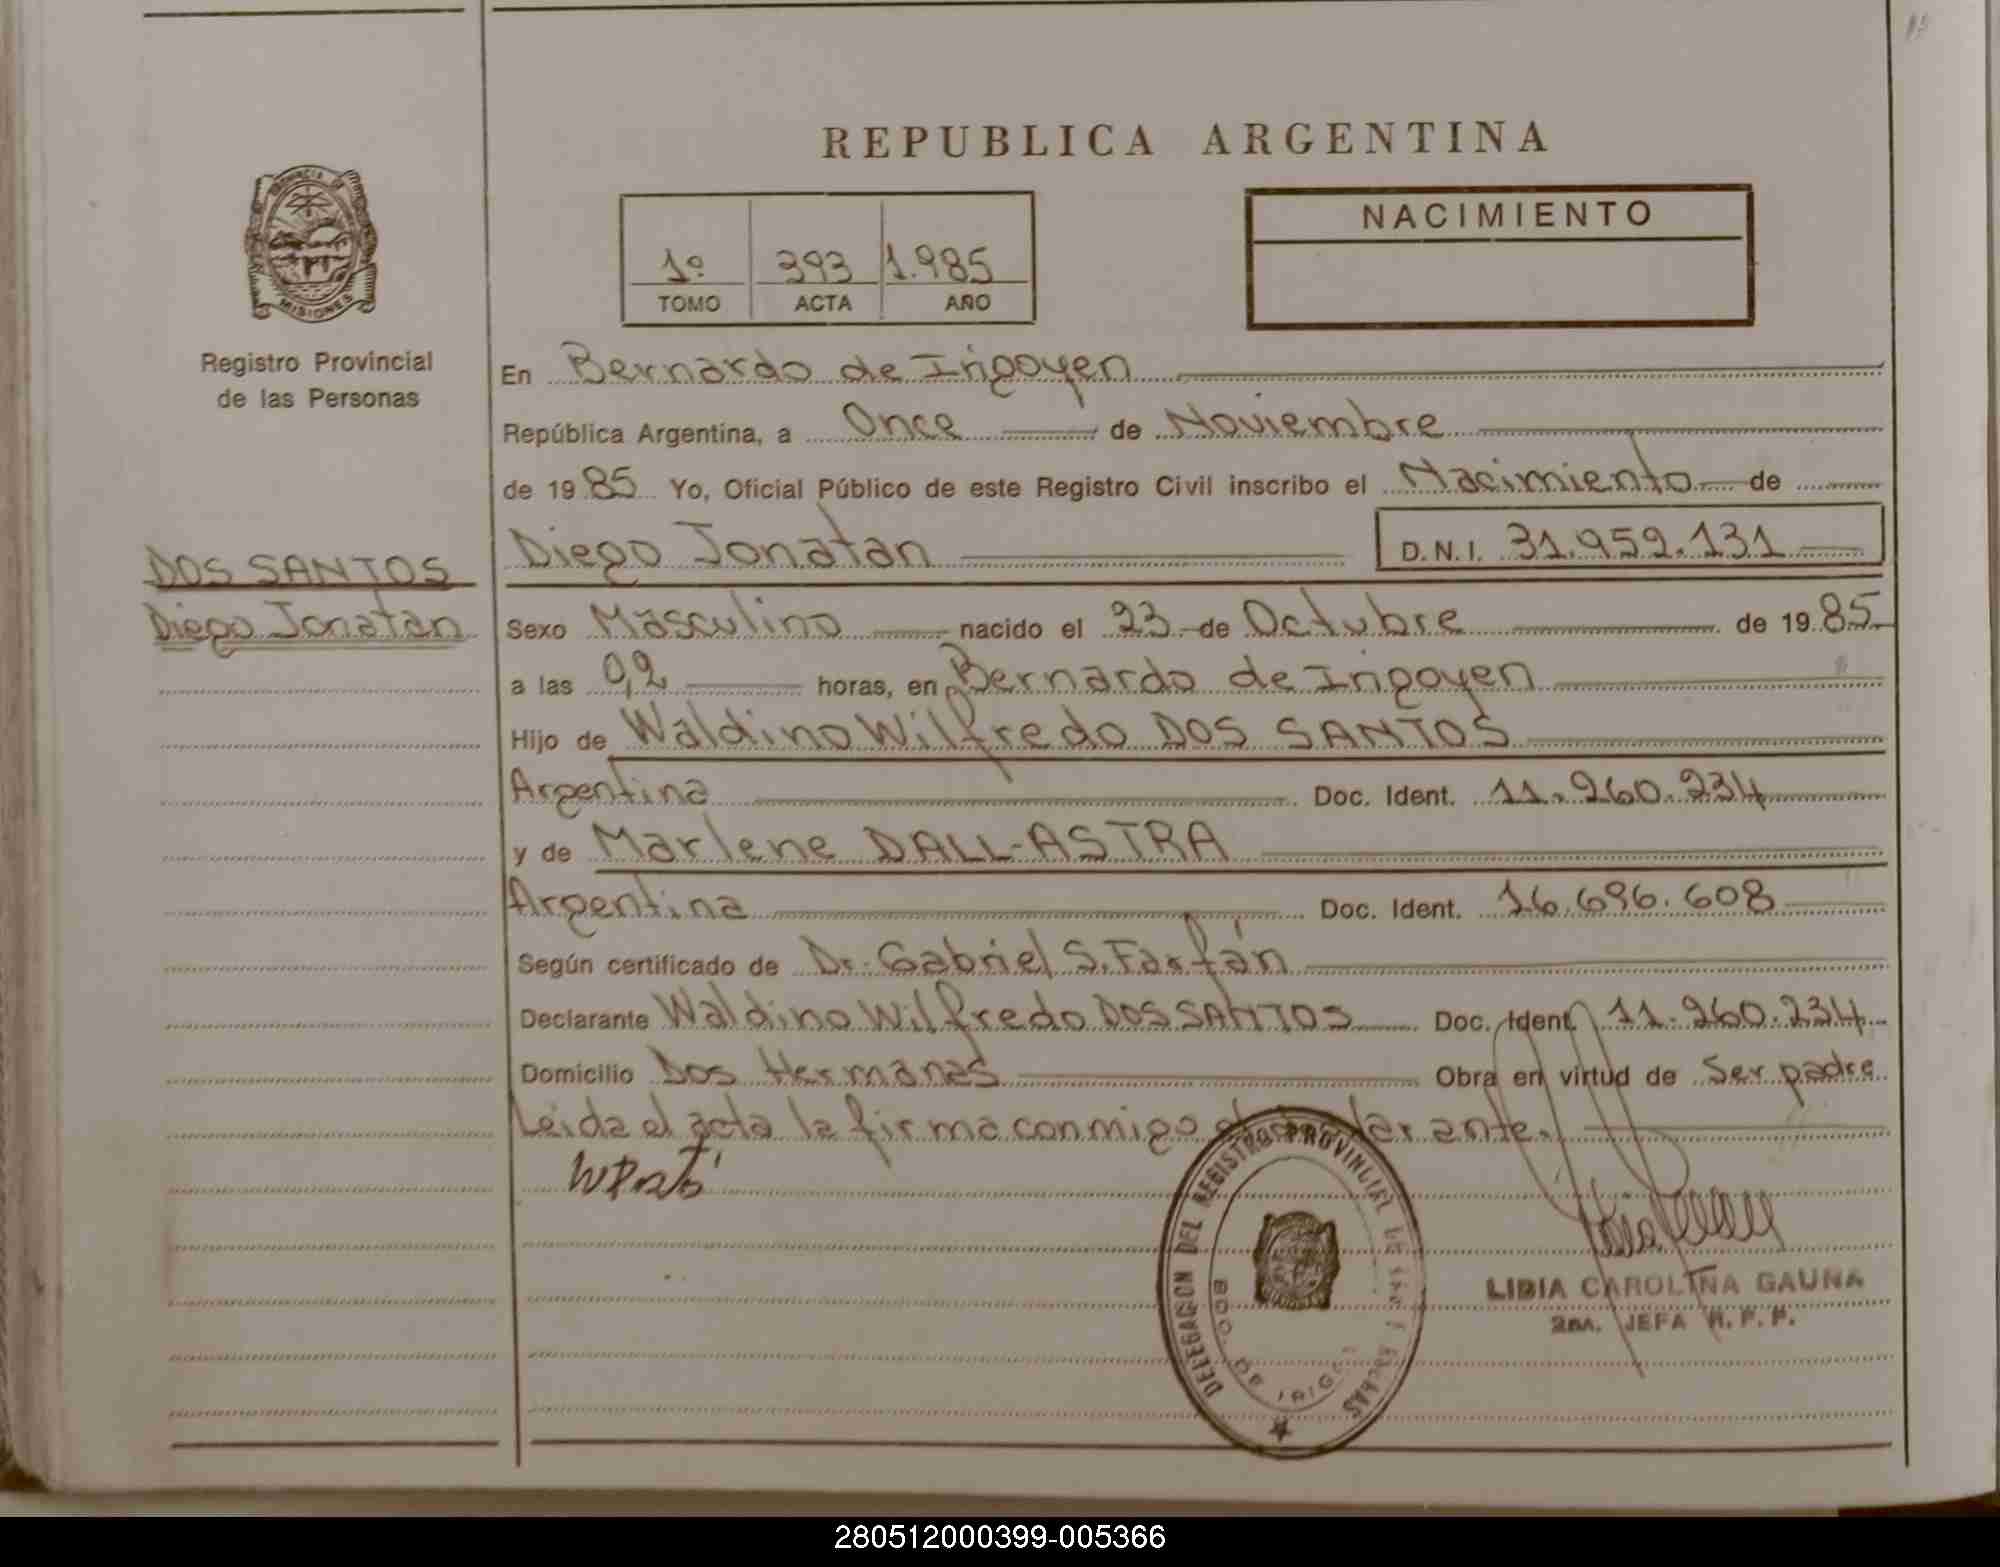 REPUBLICA ARGENTINA
PROVINCIA DE
MISIONES
Registro Provincial
de las Personas
1º 393 1.985
TOMO ACTA AÑO
NACIMIENTO
En Bernardo de Irigoyen
República Argentina, a Once de Noviembre
de 1985 Yo, Oficial Público de este Registro Civil inscribo el Nacimiento de
DOS SANTOS
Diego Jonatan
Diego Jonatan D.N.I. 31.959.131
Sexo Masculino nacido el 23 de Octubre de 1985
a las 0,2 horas, en Bernardo de Irigoyen
Hijo de Waldino Wilfredo DOS SANTOS
Argentina Doc. Ident. 11.260.234
y de Marlene DALL-ASTRA
Argentina Doc. Ident. 16.696.608
Según certificado de Dr. Gabriel S. Farfán
Declarante Waldino Wilfredo DOS SANTOS Doc. Ident. 11.260.234
Domicilio Dos Hermanas Obra en virtud de Ser padre
Leida el acta la firma conmigo el declarante.
DELEGACION DEL REGISTRO PROVINCIAL DE
BDO. DE IRIG
LIDIA CAROLINA GAUNA
2da. JEFA R. P. P.
280512000399-005366